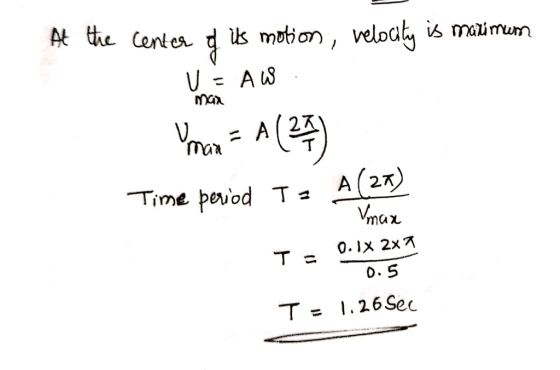 At the center of its motion, velocity is maximum
Vmax = Aω
Vmax = A(2π/T)
Time period T = A(2π)/Vmax
T = 0.1x 2xπ/0.5
T = 1.26 Sec